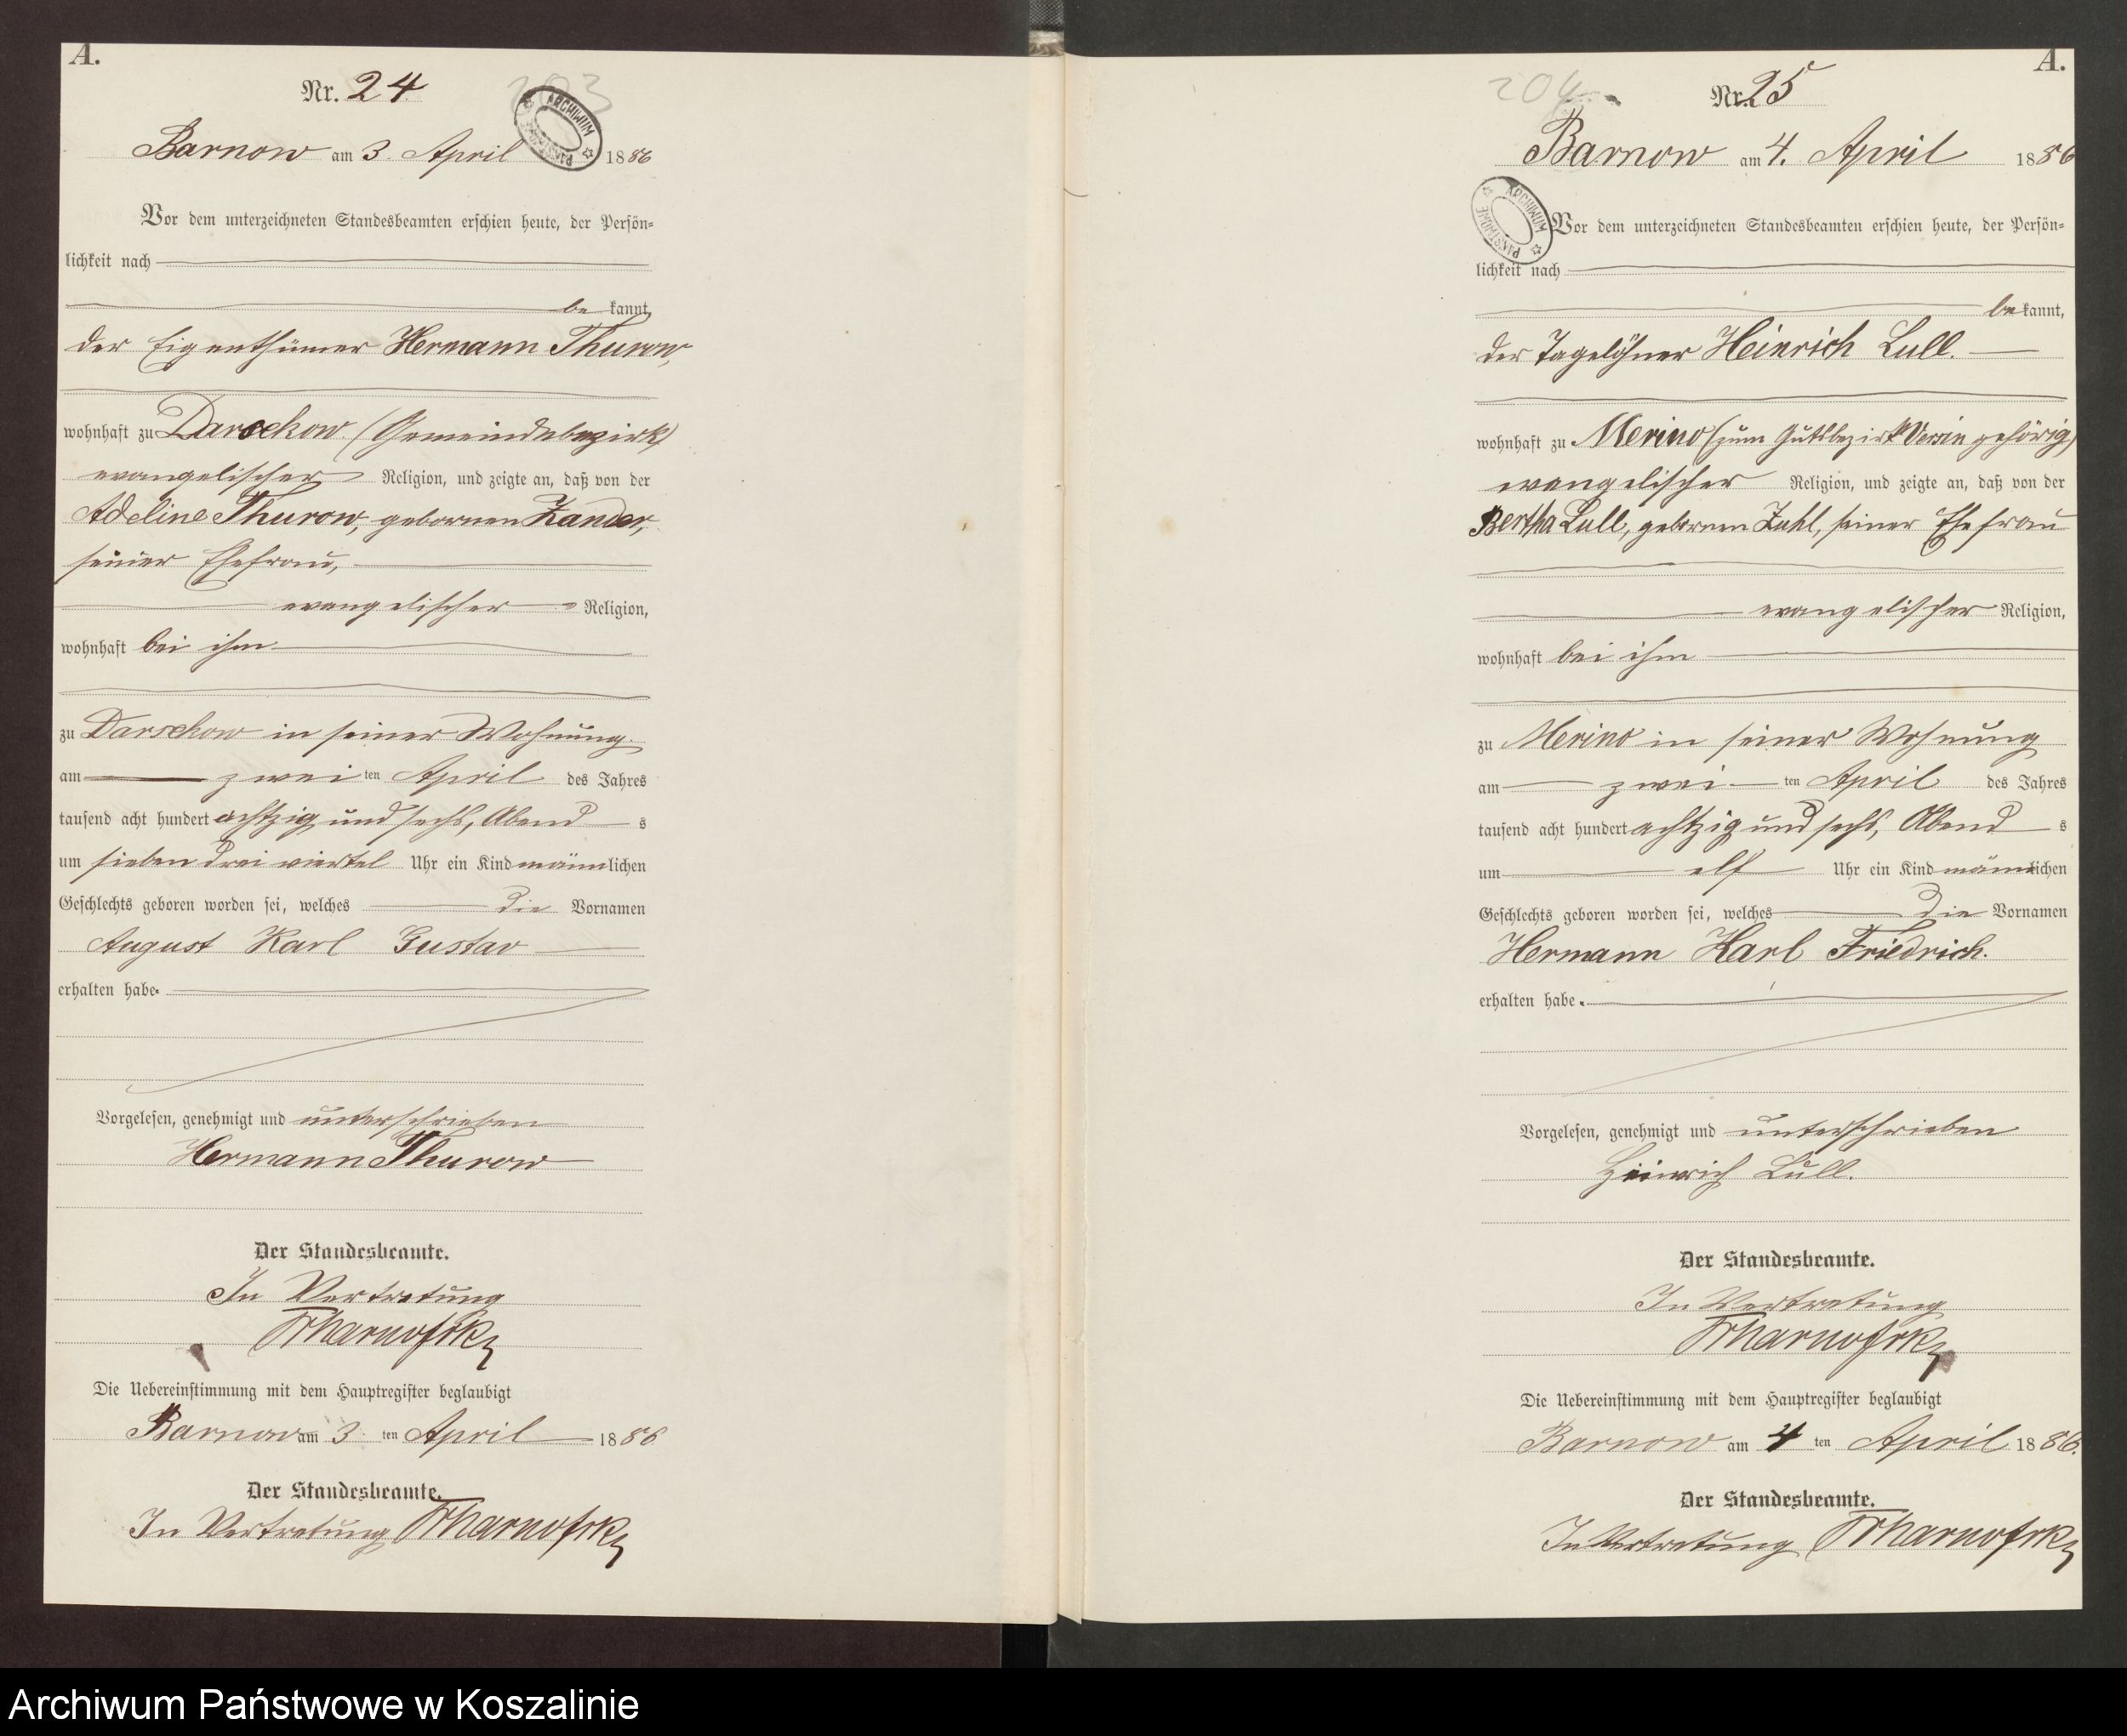 A.
Nr. 24
203
ARCHIWUM PAŃSTWOWE
Barnow am 3. April 1886
Vor dem unterzeichneten Standesbeamten erschien heute, der Persön=
lichkeit nach
be kannt,
der Eigenthümer Hermann Thurow,
wohnhaft zu Darsekow (Gemeindebezirk)
evangelischer Religion, und zeigte an, daß von der
Adeline Thurow, gebornen Zander,
seiner Ehefrau,
evangelischer Religion,
wohnhaft bei ihm
zu Darsekow in seiner Wohnung
am zwei ten April des Jahres
tausend acht hundert achtzig und sechs, Abend s
um sieben drei viertel Uhr ein Kind männlichen
Geschlechts geboren worden sei, welches die Vornamen
August Karl Gustav
erhalten habe.
Vorgelesen, genehmigt und unterschrieben
Hermann Thurow
Der Standesbeamte.
In Vertretung
Die Uebereinstimmung mit dem Hauptregister beglaubigt
Barnow am 3 ten April 1886
Der Standesbeamte.
In Vertretung
A.
204
Nr. 25
Barnow am 4. April 1886
ARCHIWUM PAŃSTWOWE
Vor dem unterzeichneten Standesbeamten erschien heute, der Persön=
lichkeit nach
be kannt,
der Tagelöhner Heinrich Lull.
wohnhaft zu Merino (zum Gutsbezirk Versin gehörig)
evangelischer Religion, und zeigte an, daß von der
Bertha Lull, gebornen Zuhl, seiner Ehefrau
evangelischer Religion,
wohnhaft bei ihm
zu Merino in seiner Wohnung
am zwei ten April des Jahres
tausend acht hundert achtzig und sechs, Abend s
um elf Uhr ein Kind männlichen
Geschlechts geboren worden sei, welches die Vornamen
Hermann Karl Friedrich.
erhalten habe.
Vorgelesen, genehmigt und unterschrieben
Heinrich Lull.
Der Standesbeamte.
In Vertretung
Die Uebereinstimmung mit dem Hauptregister beglaubigt
Barnow am 4 ten April 1886.
Der Standesbeamte.
In Vertretung
Archiwum Państwowe w Koszalinie